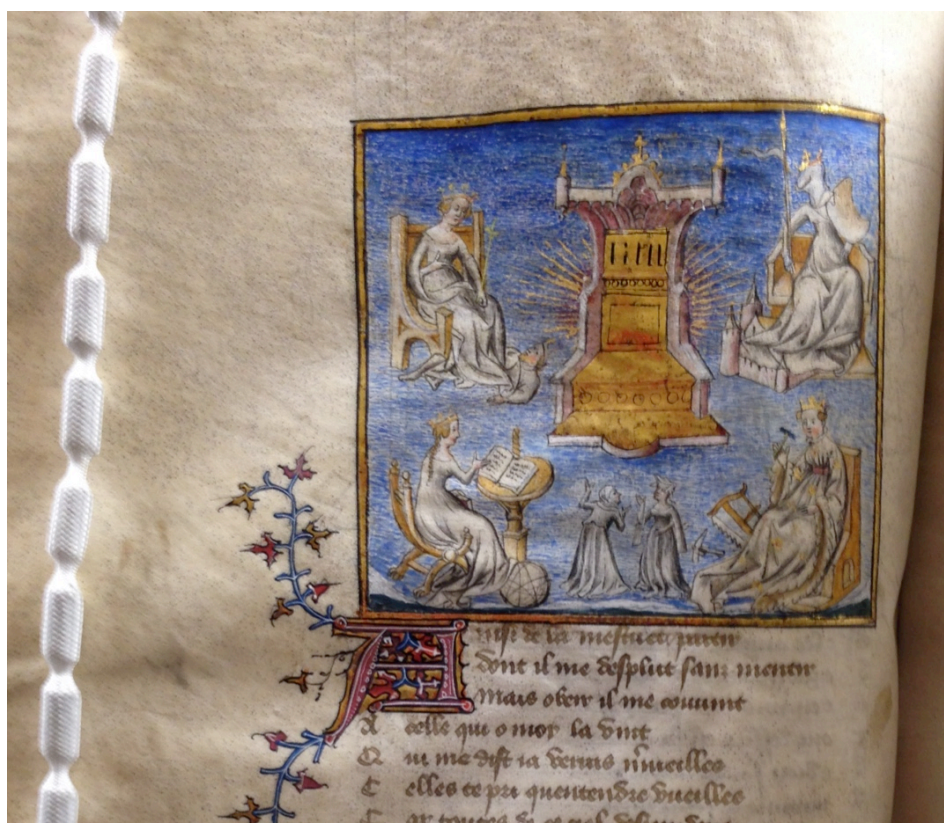 Ainsi de la mestuet partir
dont il me desplut sanz mentir
Mais obeir il me couuint
A celle qui o moy la vint
Qui me dist ia verras m̃ueilles
Celles te pri quentendre vueilles
Car toutes de